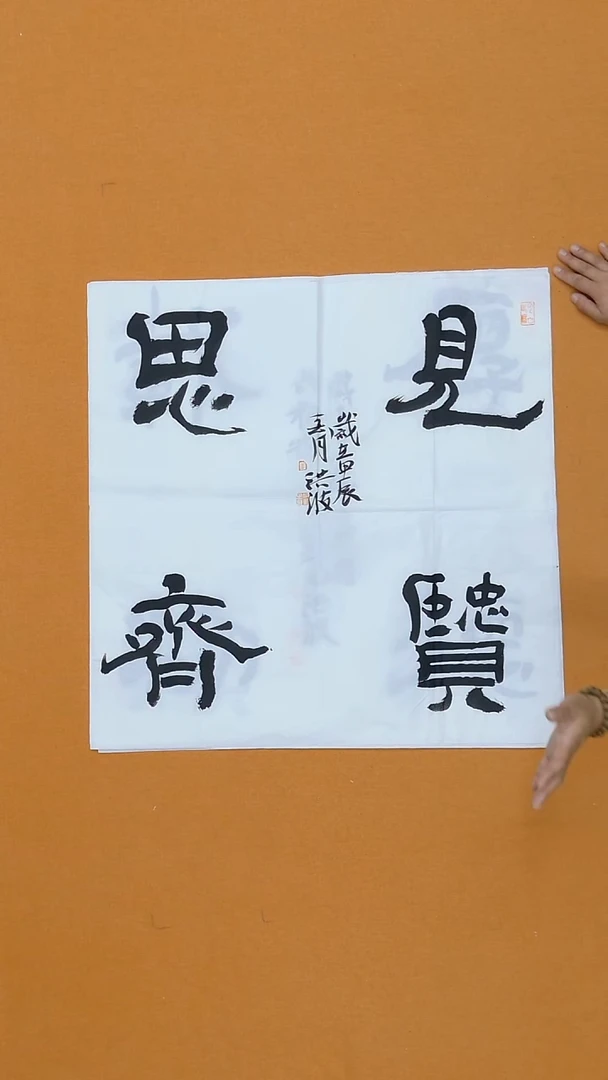 見贒
思齊
歲在甲辰
五月洪波